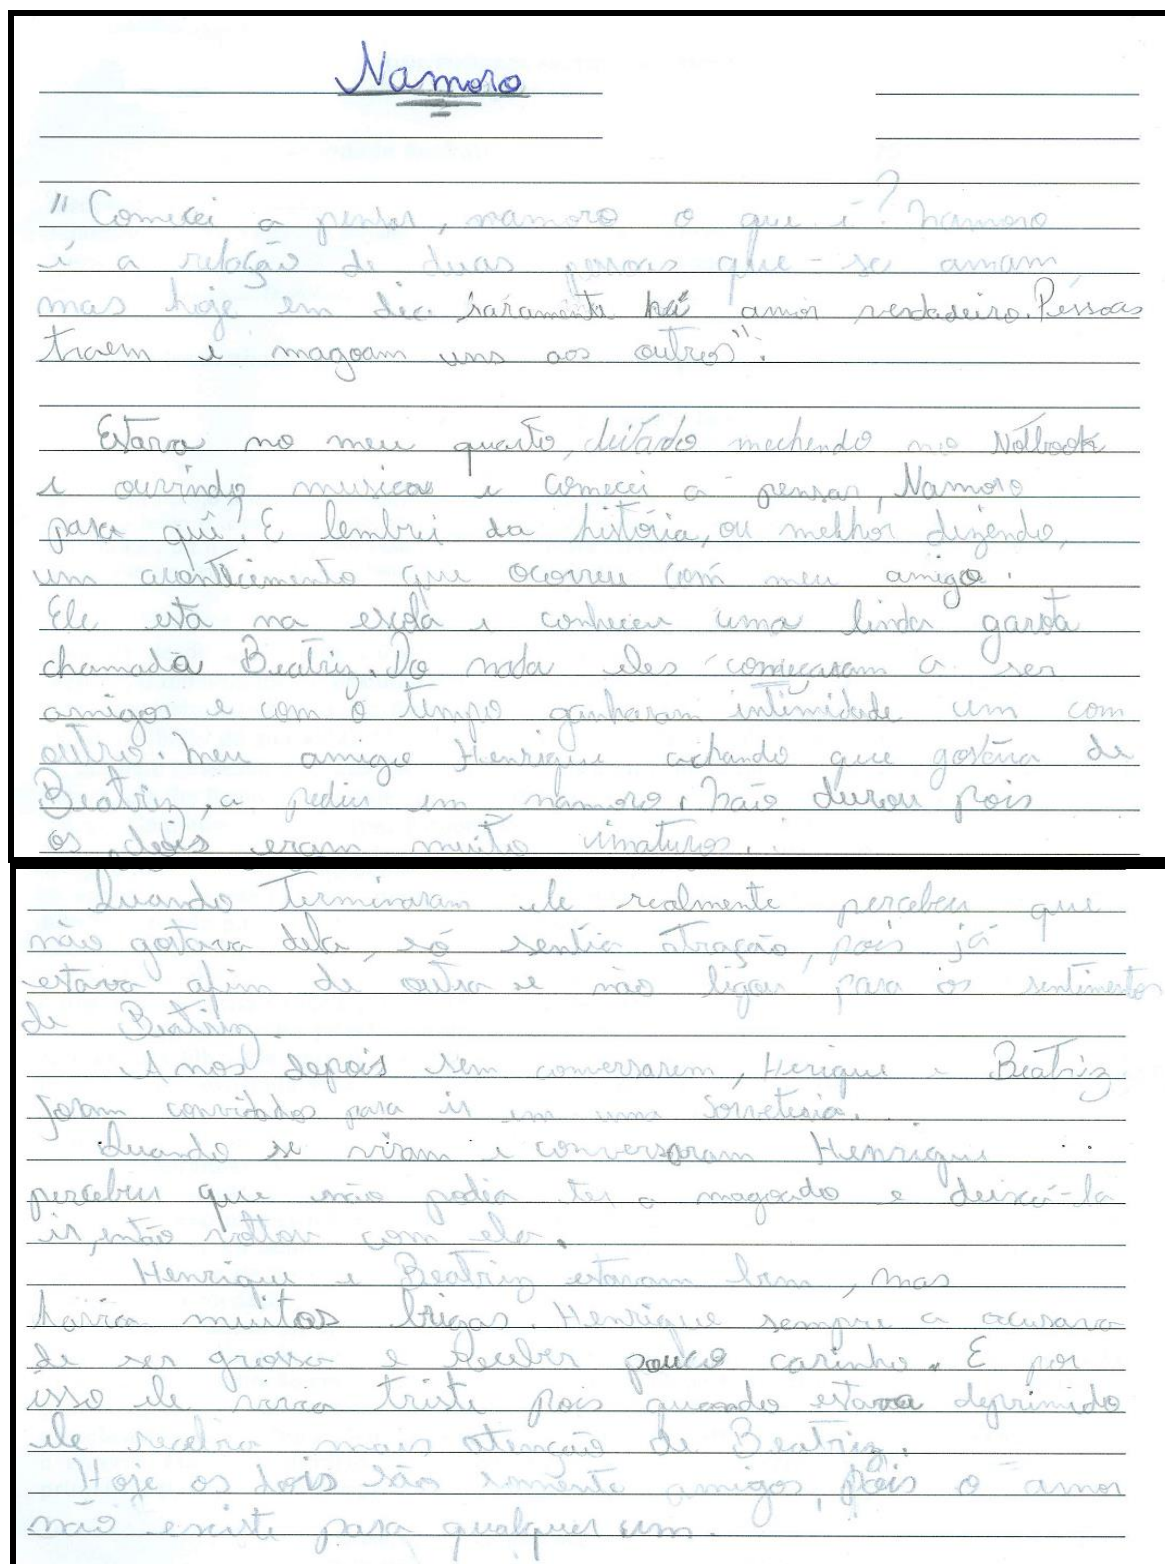 Namoro
"Comecei a pensar, namoro o que é? Namoro
é a relação de duas pessoas que-se amam,
mas hoje em dia raramente há amor verdadeiro. Pessoas
traem e magoam uns aos outros".
Estava no meu quarto, deitado mechendo no Notbook
e ouvindo musicas e comecei a pensar, Namoro
para quê? E lembrei da história, ou melhor dizendo,
um acontecimento que ocorreu com meu amigo.
Ele está na escola e conheceu uma linda garota
chamada Beatriz. Do nada eles começaram a ser
amigos e com o tempo ganharam intimidade um com
outro. Meu amigo Henrique achando que gostava de
Beatriz, a pediu em namoro. Não durou pois
os dois eram muito imaturos.
Quando terminaram ele realmente percebeu que
não gostava dela, só sentia atração, pois já
estava afim de outra e não ligou para os sentimentos
de Beatriz.
Anos depois sem conversarem, Herique e Beatriz
foram convidados para ir em uma sorveteria.
Quando se viram e conversaram Henrique
percebeu que não podia ter a magoado e deixá-la
ir, então voltou com ela.
Henrique e Beatriz estavam bem, mas
havia muitas brigas. Henrique sempre a acusava
de ser grossa e receber pouco carinho. E por
isso ele vivia triste pois quando estava deprimido
ele recebia mais atenção de Beatriz.
Hoje os dois são somente amigos, pois o amor
não existe para qualquer um.